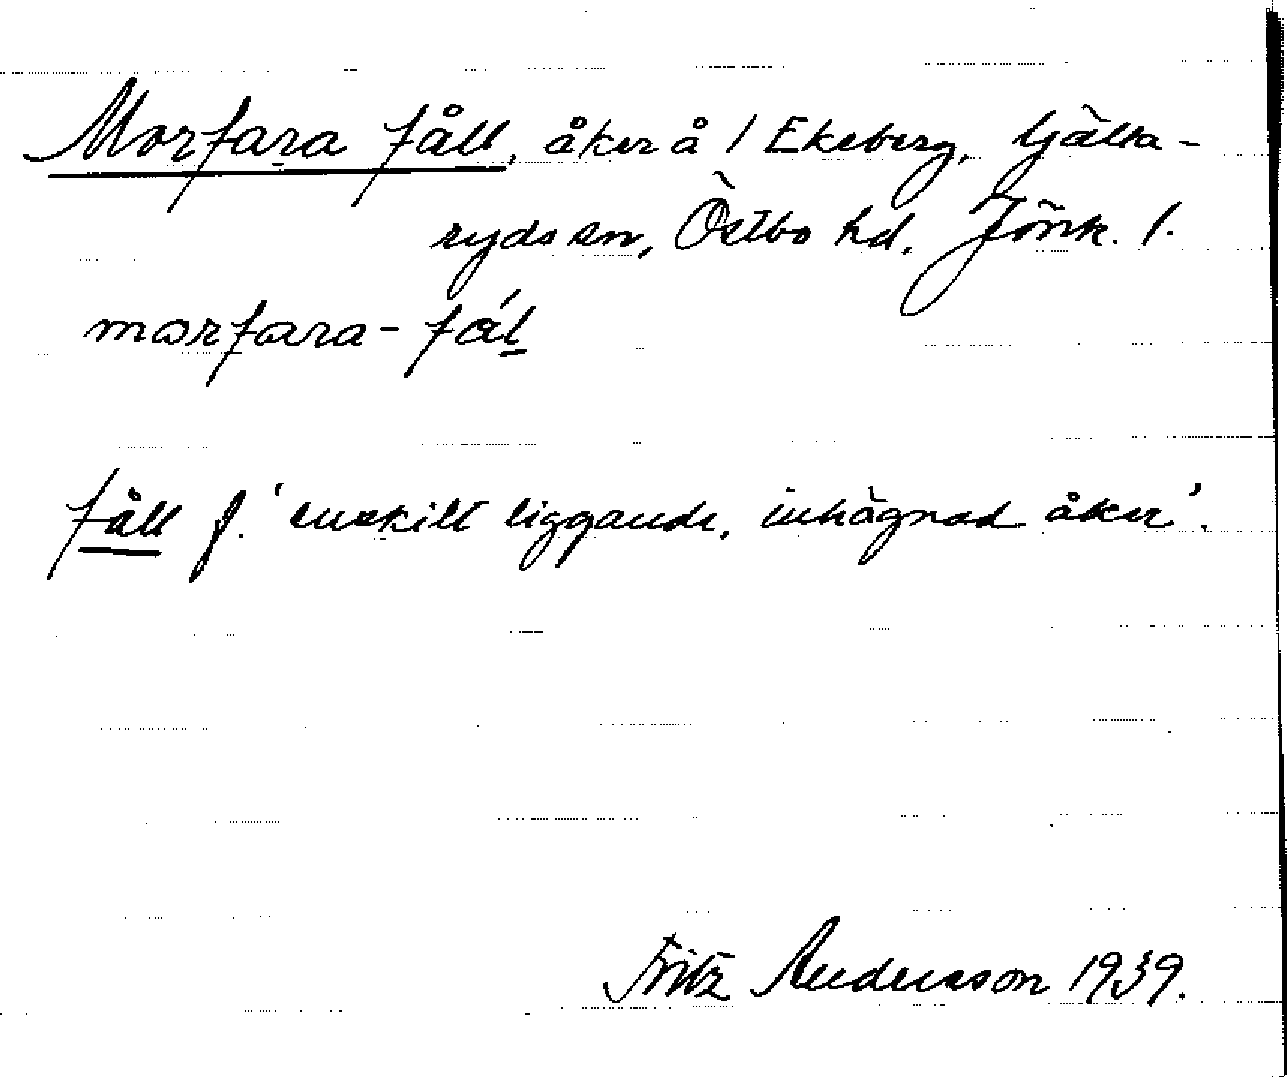 Morfara fåll, åker å / Ekeberg, Gjälla-
ryds sn, Östbo hd. Jönk. l.
morfara-fá̊l
fåll f. 'enskilt liggande, inhägnad åker'.
Fritz Andersson 1939.